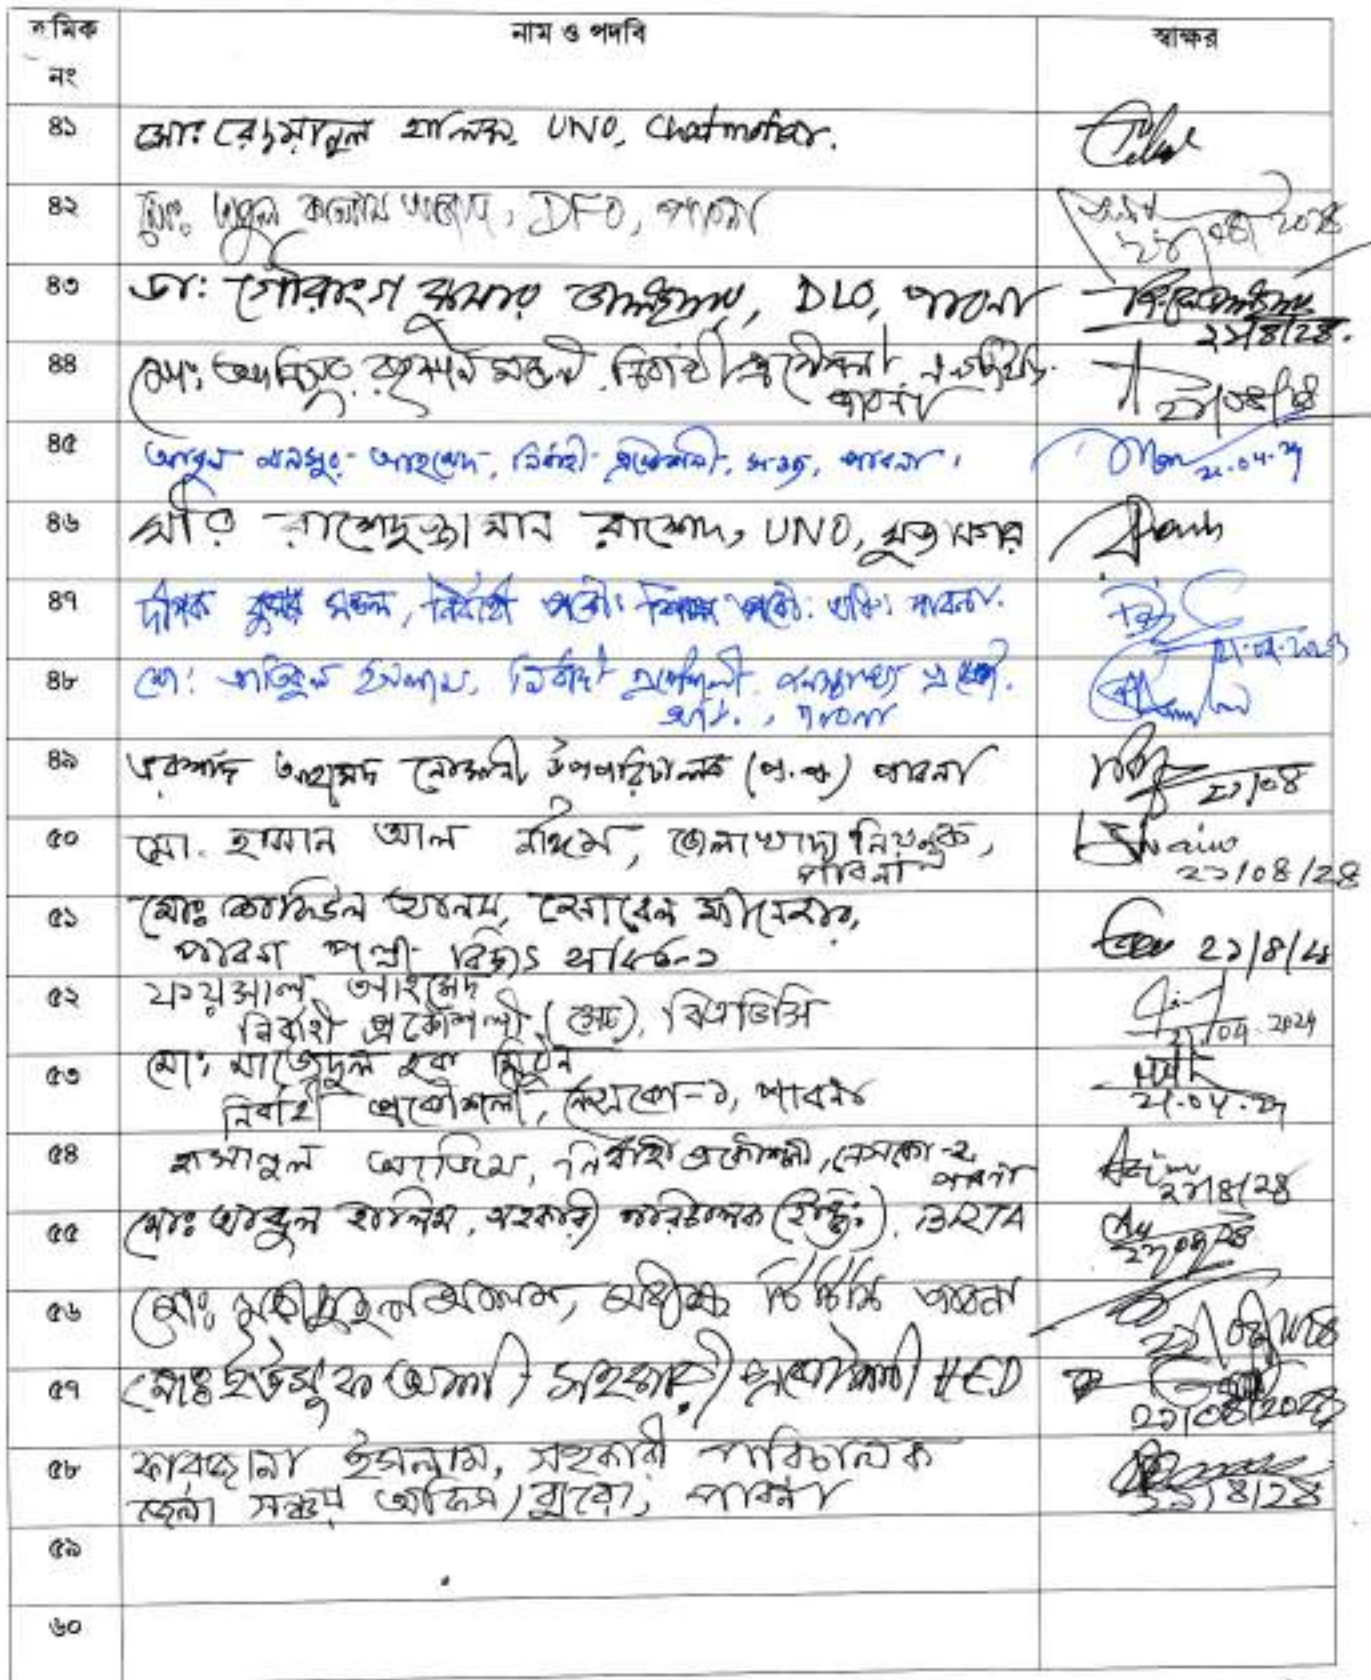 ক্রমিক নং
নাম ও পদবি
স্বাক্ষর
৪১ মোঃ রেদুয়ানুল হালিম, UNO, Chatmohar.
৪২ মোঃ আবুল কালাম আজাদ, DFO, পাবনা
৪৩ ডা: গৌরাংগ কুমার তালুকদার, DLO, পাবনা
২১/৪/২৪.
৪৪ মোঃ আনিসুর রহমান মন্ডল, নির্বাহী প্রকৌশলী, এলজিইডি.
পাবনা
২১/০৪/২৪
৪৫ আবুল মনসুর আহমেদ, নির্বাহী প্রকৌশলী, সওজ, পাবনা।
21.04.24
৪৬ মীর রাশেদুজ্জামান রাশেদ, UNO,
৪৭ দীপক কুমার মন্ডল, নির্বাহী প্রকৌ: শিক্ষা প্রকৌ: অধি: পাবনা.
৪৮ মো: আতিকুল ইসলাম, নির্বাহী প্রকৌশলী, জনস্বাস্থ্য প্রকৌ.
অধি., পাবনা
৪৯ আহমেদ উপপরিচালক (প.প) পাবনা
২১/০৪
৫০ মো. হাসান আল নাঈম, জেলা খাদ্য নিয়ন্ত্রক,
পাবনা
২১/০৪/২৪
৫১ মোঃ আলম, জেনারেল ম্যানেজার,
পাবনা পল্লী বিদ্যুৎ সমিতি-১
২১/৪/২৪
৫২ ফয়সাল আহমেদ
নির্বাহী প্রকৌশলী (সেচ), বিএডিসি
21/04.2024
৫৩ মো: মাজেদুল হক
নির্বাহী প্রকৌশলী, নেসকো-১, পাবনা
21.04.24
৫৪ হাসানুল আজিম, নির্বাহী প্রকৌশলী, নেসকো-২,
পাবনা
২১/৪/২৪
৫৫ মোঃ আব্দুল হালিম, সহকারী পরিচালক (ইঞ্জি:), BRTA
৫৬ মোঃ পাবনা
৫৭ মোঃ ইউসুফ আলী সহকারী প্রকৌশলী HED
২১/০৪/২০২৪
৫৮ ফারজানা ইসলাম, সহকারী পরিচালক
জেলা সঞ্চয় অফিস/ব্যুরো, পাবনা
২১/৪/২৪
৫৯
৬০